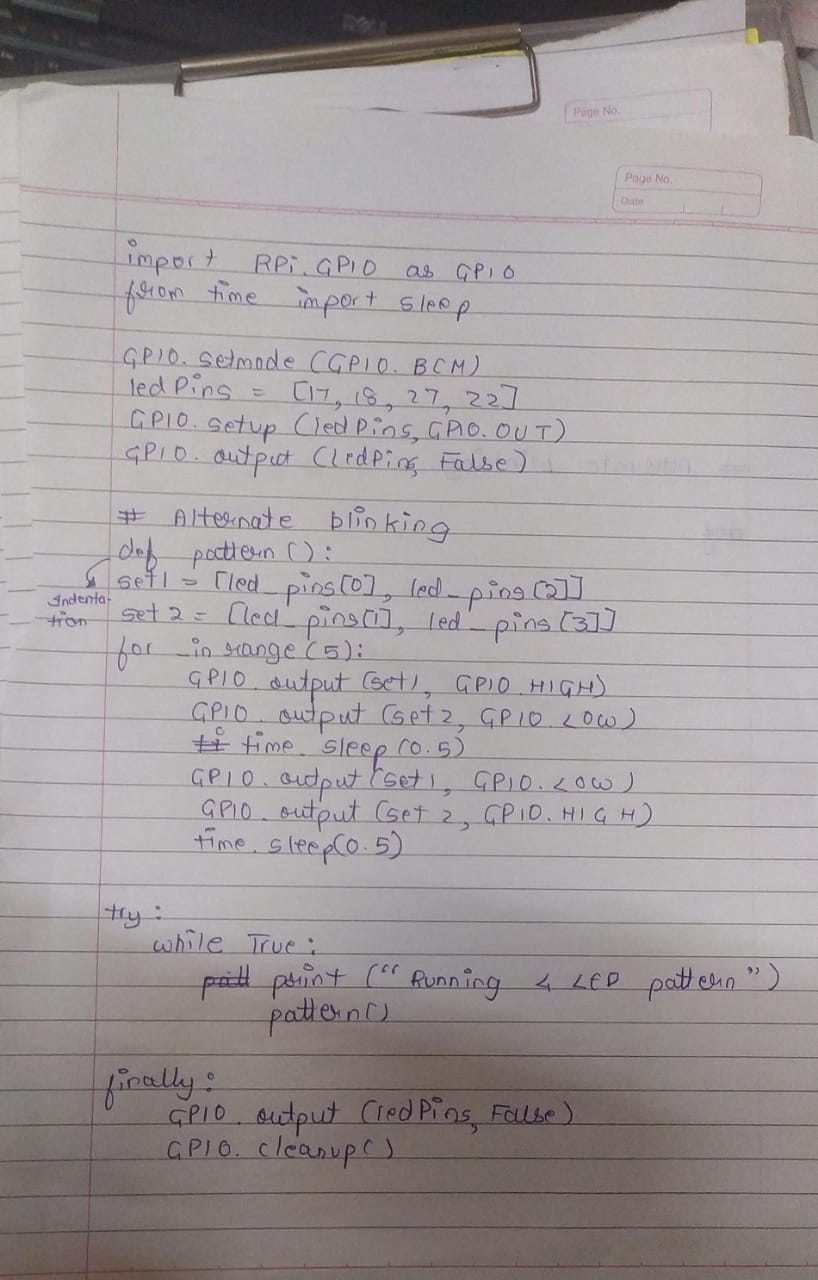 Page No.
Page No.
Date
import RPi.GPIO as GPIO
from time import sleep
GPIO.setmode (GPIO.BCM)
ledPins = [17, 18, 27, 22]
GPIO.setup (ledPins, GPIO.OUT)
GPIO.output (ledPins, False)
# Alternate blinking
def pattern():
set1 = [led_pins[0], led_pins[2]]
Indentation
set2 = [led_pins[1], led_pins[3]]
for _ in range(5):
GPIO.output (set1, GPIO.HIGH)
GPIO.output (set2, GPIO.LOW)
time.sleep(0.5)
GPIO.output (set1, GPIO.LOW)
GPIO.output (set2, GPIO.HIGH)
time.sleep(0.5)
try:
while True:
print ("Running 4 LED pattern")
pattern()
finally:
GPIO.output (ledPins, False)
GPIO.cleanup()